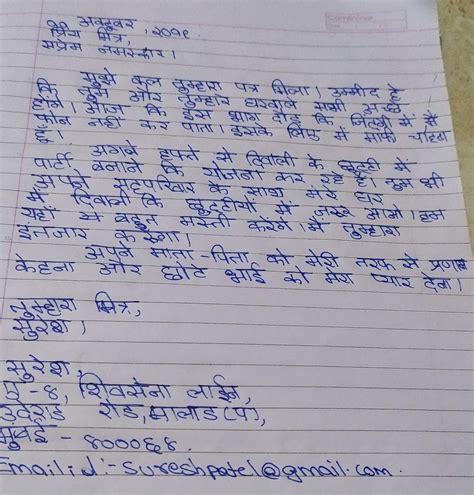 अक्टूबर, २०१९
प्रिय मित्र,
सप्रेम नमस्कार।
मुझे कल तुम्हारा पत्र मिला। उम्मीद है
कि तुम और तुम्हारे घरवाले सभी अच्छे
होंगे। आज कि इस भाग दौड कि जिंदगी में मैं
फोन नहीं कर पाता। इसके लिए मैं माफी चाहता
हूँ।
अगले हफ्ते से दिवाली के छुट्टी में
पार्टी बनाने कि योजना कर रहे है। तुम भी
अपने सहपरिवार के साथ मेरे घर
में दिवाली कि छुट्टीयों में जरूर आना। हम
यहाँ पे बहुत मस्ती करेंगे। मैं तुम्हारा
इंतजार करूंगा।
अपने माता-पिता को मेरी तरफ से प्रणाम
केहना और छोटे भाई को मेरा प्यार देना।
तुम्हारा मित्र,
सुरेश।
सुरेश,
ए-४, शिवसेना लाईन,
रोड, मालाड (प),
मुंबई - ४०००६४.
Email id:- sureshpatel@gmail.com.